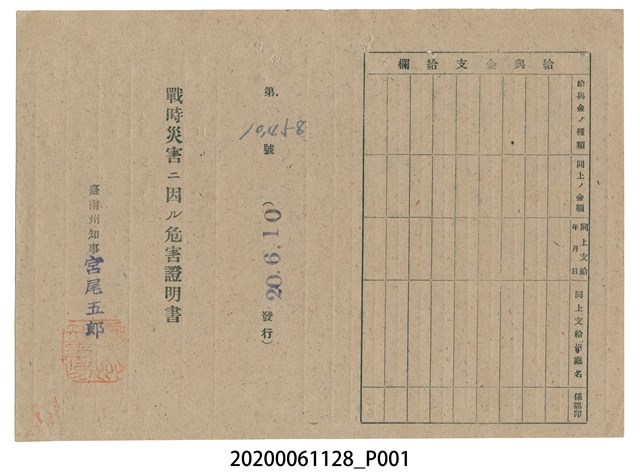 給與金支給欄
給與金ノ種類
同上ノ金額
同上支給年月日
同上支給廳名
係認印
第10,458號
(20.6.10發行)
戰時災害ニ因ル危害證明書
臺南州知事宮尾五郎
20200061128_P001